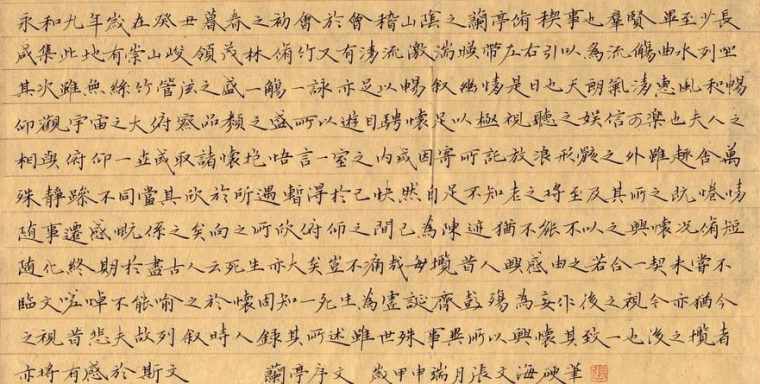 永和九年歲在癸丑暮春之初會於會稽山陰之蘭亭脩稧事也羣賢畢至少長
咸集此地有崇山峻領茂林脩竹又有清流激湍暎帶左右引以為流觴曲水列坐
其次雖無絲竹管弦之盛一觴一詠亦足以暢叙幽情是日也天朗氣清惠風和暢
仰觀宇宙之大俯察品類之盛所以遊目騁懷足以極視聽之娛信可樂也夫人之
相與俯仰一世或取諸懷抱悟言一室之內或因寄所託放浪形骸之外雖趣舍萬
殊靜躁不同當其欣於所遇暫得於己快然自足不知老之將至及其所之既惓情
隨事遷感慨係之矣向之所欣俯仰之間已為陳迹猶不能不以之興懷况脩短
隨化終期於盡古人云死生亦大矣豈不痛哉每攬昔人興感由之若合一契未嘗不
臨文嗟悼不能喻之於懷固知一死生為虛誕齊彭殤為妄作後之視今亦猶今
之視昔悲夫故列叙時人錄其所述雖世殊事異所以興懷其致一也後之攬者
亦將有感於斯文 蘭亭序文 歲甲申端月張文海硬筆